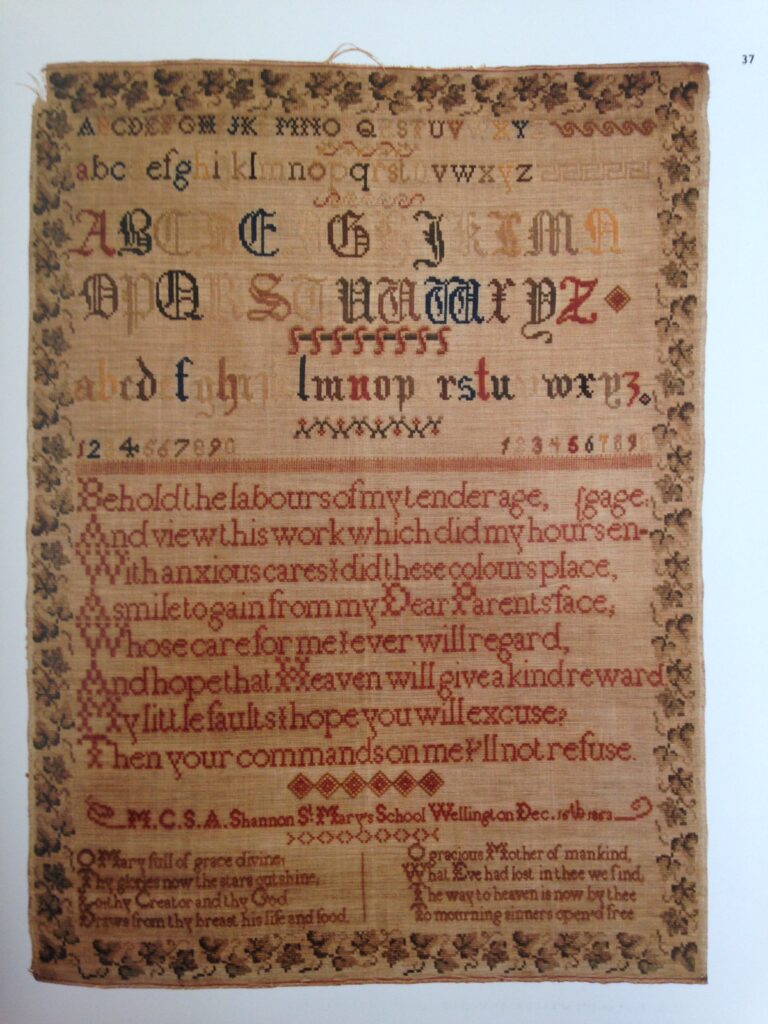 37
ABCDEFGH JK MNO QRSTUVWXY
abcdefghijklmnopqrstuvwxyz
ABCDEFGHJKLMN
OPQRSTUVWXYZ
abcdefghijklmnop rstuvwxyz
1234567890 123456789
Behold the labours of my tender age, {gage,
And view this work which did my hours en-
With anxious cares I did these colours place,
A smile to gain from my Dear Parents face,
Whose care for me I ever will regard,
And hope that Heaven will give a kind reward
My little faults I hope you will excuse?
Then your commands on me I'll not refuse.
M.C.S.A. Shannon St Mary's School Wellington Dec. 16th
O Mary full of grace divine,
Thy glories now the stars outshine,
Lo thy Creator and thy God
Draws from thy breast his life and food.
O gracious Mother of mankind,
What Eve had lost in thee we find,
The way to heaven is now by thee
To mourning sinners open'd free